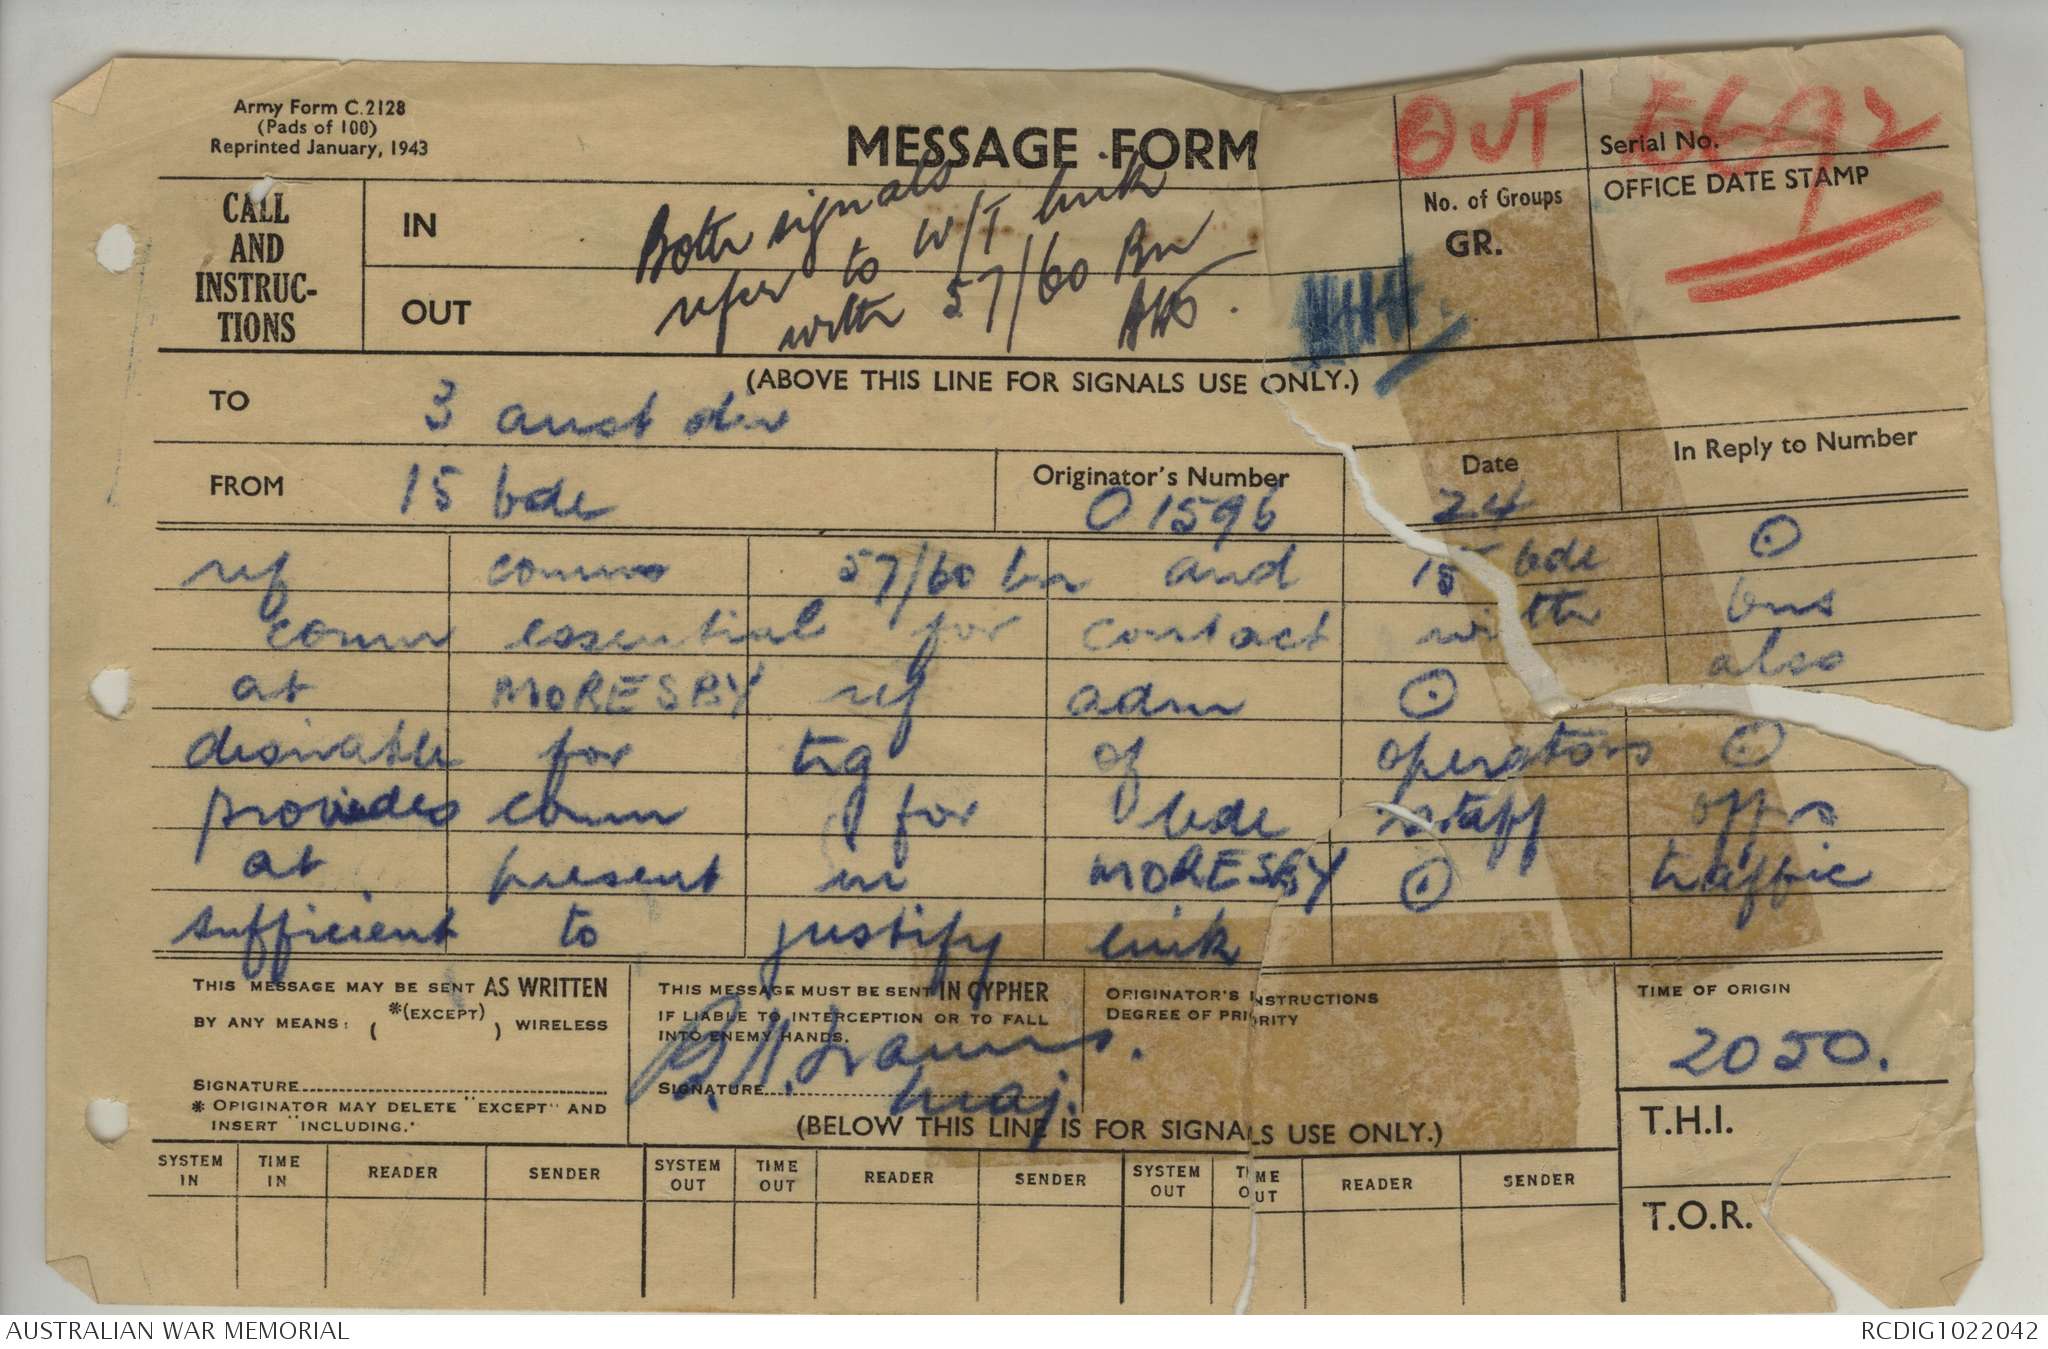 Army Form C.2128
(Pads of 100)
Reprinted January, 1943
MESSAGE FORM
OUT
Serial No. 5692
CALL AND INSTRUC- TIONS
IN
OUT
Both signals
refer to W/T link
with 57/60 Bn
No. of Groups
GR.
OFFICE DATE STAMP
(ABOVE THIS LINE FOR SIGNALS USE ONLY.)
TO 3 aust div
FROM 15 bde
Originator's Number 01596
Date 24
In Reply to Number
ref comms 57/60 bn and 15 bde ⊙
comm essential for contact with bns
at MORESBY ref adm ⊙ also
desirable for trg of operators ⊙
provides comm for bde staff offrs
at present in MORESBY ⊙ traffic
sufficient to justify link
THIS MESSAGE MAY BE SENT AS WRITTEN
BY ANY MEANS: *(EXCEPT) ( ) WIRELESS
SIGNATURE
* ORIGINATOR MAY DELETE "EXCEPT" AND
INSERT "INCLUDING."
THIS MESSAGE MUST BE SENT IN CYPHER
IF LIABLE TO INTERCEPTION OR TO FALL
INTO ENEMY HANDS.
SIGNATURE maj.
ORIGINATOR'S INSTRUCTIONS
DEGREE OF PRIORITY
TIME OF ORIGIN
2050.
T.H.I.
T.O.R.
(BELOW THIS LINE IS FOR SIGNALS USE ONLY.)
SYSTEM IN TIME IN READER SENDER SYSTEM OUT TIME OUT READER SENDER SYSTEM OUT TIME OUT READER SENDER
AUSTRALIAN WAR MEMORIAL
RCDIG1022042